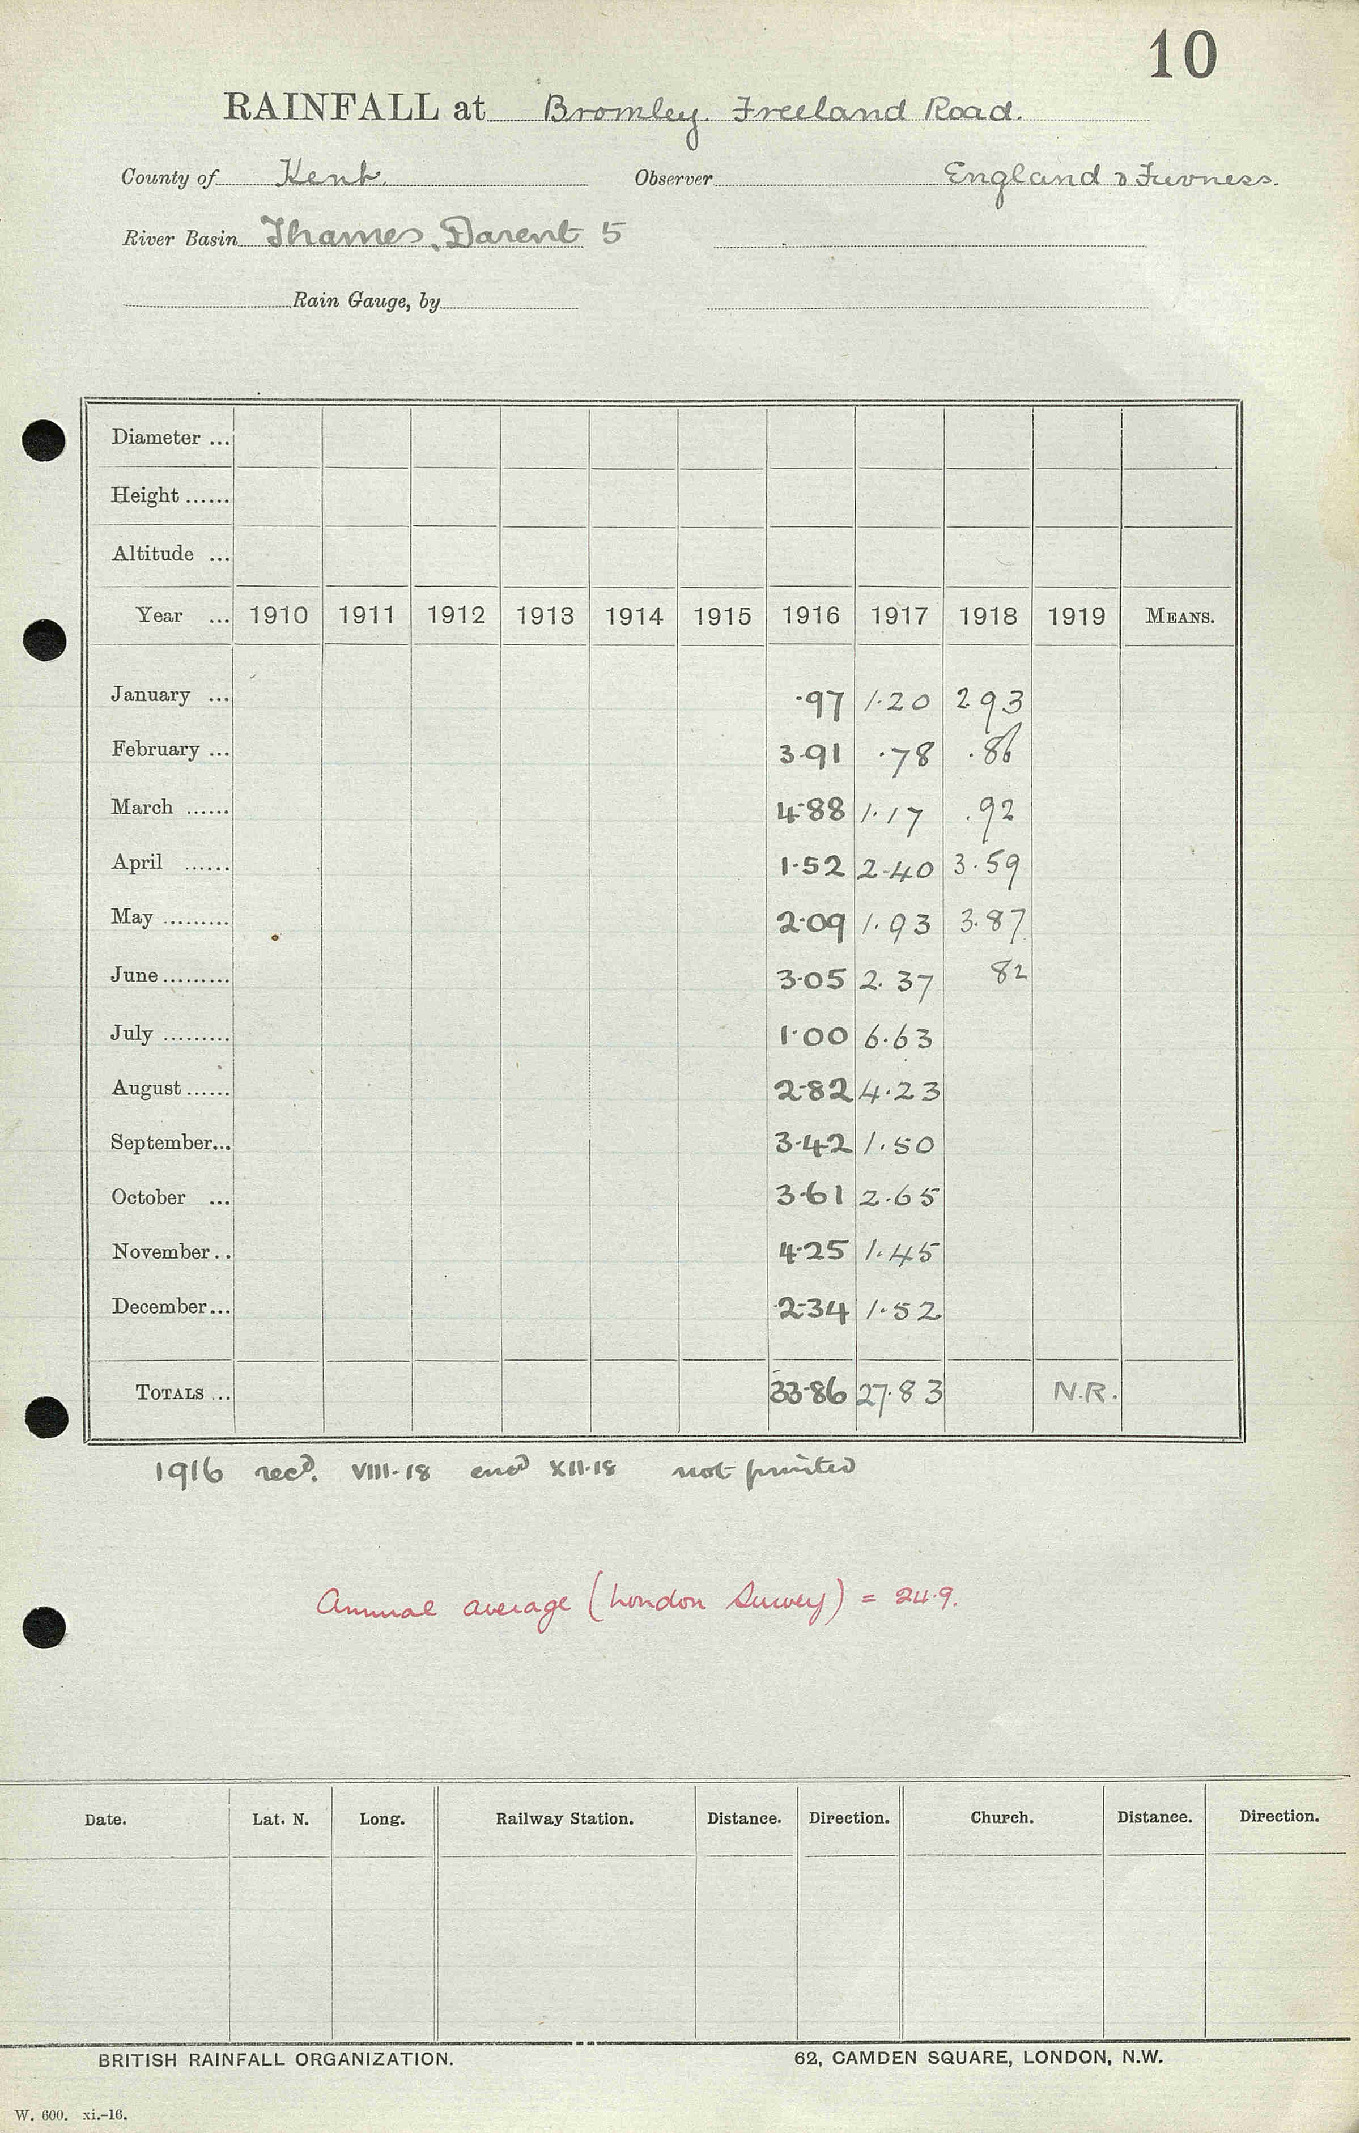 10
RAINFALL at Bromley. Freeland Road.
County of Kent. Observer England & Furness.
River Basin Thames, Darent 5
Rain Gauge, by
Diameter ...
Height ......
Altitude ...
Year ... 1910 1911 1912 1913 1914 1915 1916 1917 1918 1919 MEANS.
January ... .97 1.20 2.93
February ... 3.91 .78 .86
March ...... 4.88 1.17 .92
April ...... 1.52 2.40 3.59
May ......... 2.09 1.93 3.87
June ......... 3.05 2.37 82
July ......... 1.00 6.63
August ...... 2.82 4.23
September... 3.42 1.50
October ... 3.61 2.65
November .. 4.25 1.45
December... 2.34 1.52
TOTALS ... 33.86 27.83 N.R.
1916 recd. VIII.18 end XII.18 not printed
Annual average (London Survey) = 24.9.
Date. Lat. N. Long. Railway Station. Distance. Direction. Church. Distance. Direction.
BRITISH RAINFALL ORGANIZATION. 62, CAMDEN SQUARE, LONDON, N.W.
W. 600. xi.-16.